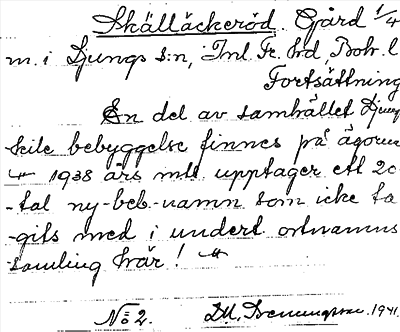 Skälläckeröd. Gård 1/4
m. i Ljungs s:n, Inl. Fr. hd, Boh. l.
Fortsättning
En del av samhället Ljung
skile bebyggelse finnes på ägorna
1938 års mtl upptager ett 20
-tal ny-beb.-namn som icke ta
-gits med i undert. ortnamns
samling här!
No 2. 1941.